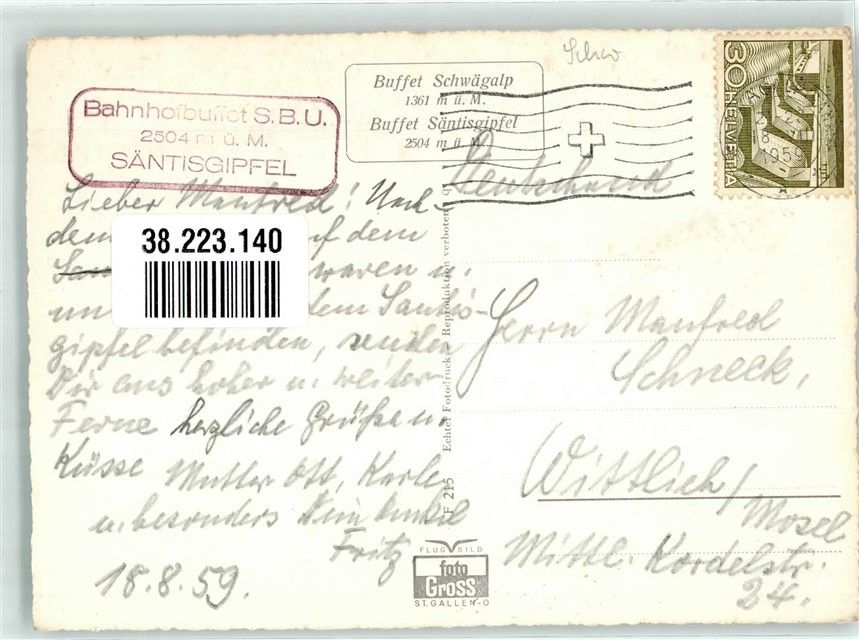 Bahnhofbuffet S.B.U.
2504 m ü. M.
SÄNTISGIPFEL
Buffet Schwägalp
1361 m ü. M.
Buffet Säntisgipfel
2504 m ü. M.
30 HELVETIA
Deutschland
38.223.140
Lieber Manfred! Nach-
dem auf dem
waren u.
un dem Säntis-
gipfel befinden, senden
Dir aus hoher u. weiter
Ferne herzliche Grüße u.
Küsse Mutter Ott, Karle
u. besonders Dein Onkel
Fritz
18.8.59.
F 215 Echter Fotodruck Reproduktion verboten
FLUG BILD
foto
Gross
ST. GALLEN-O
Herrn Manfred
Schneck,
Wittlich/
Mosel
Mittl. Kordelstr.
24.